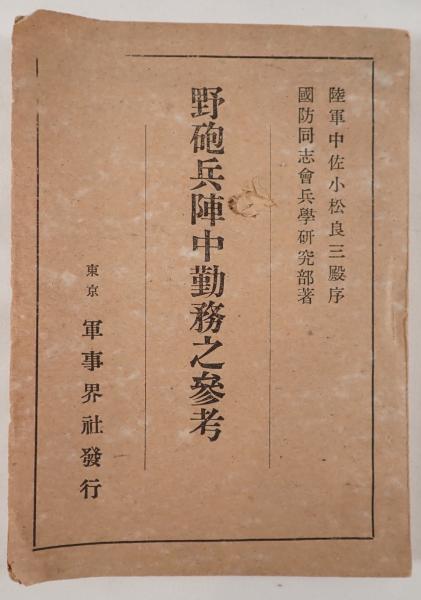 陸軍中佐小松良三殿序
國防同志會兵學硏究部著
野砲兵陣中勤務之參考
東京 軍事界社發行